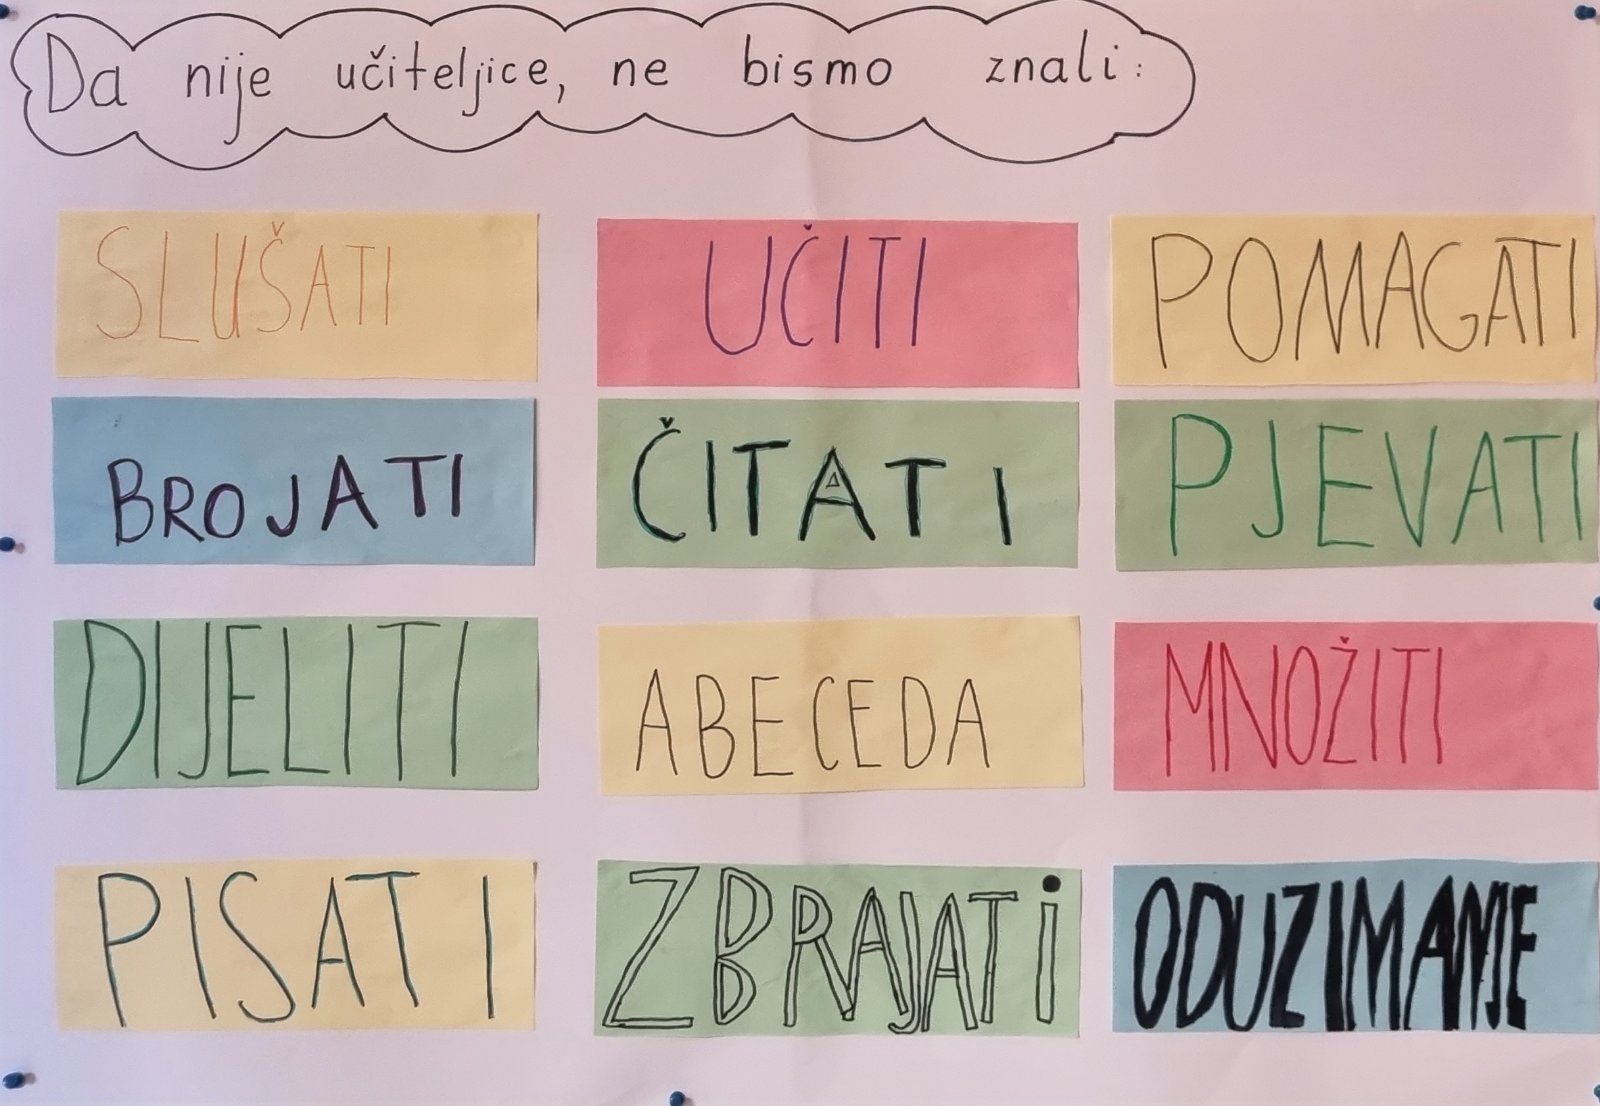 Da nije učiteljice, ne bismo znali:
SLUŠATI
UČITI
POMAGATI
BROJATI
ČITATI
PJEVATI
DIJELITI
ABECEDA
MNOŽITI
PISATI
ZBRAJATi
ODUZIMANJE